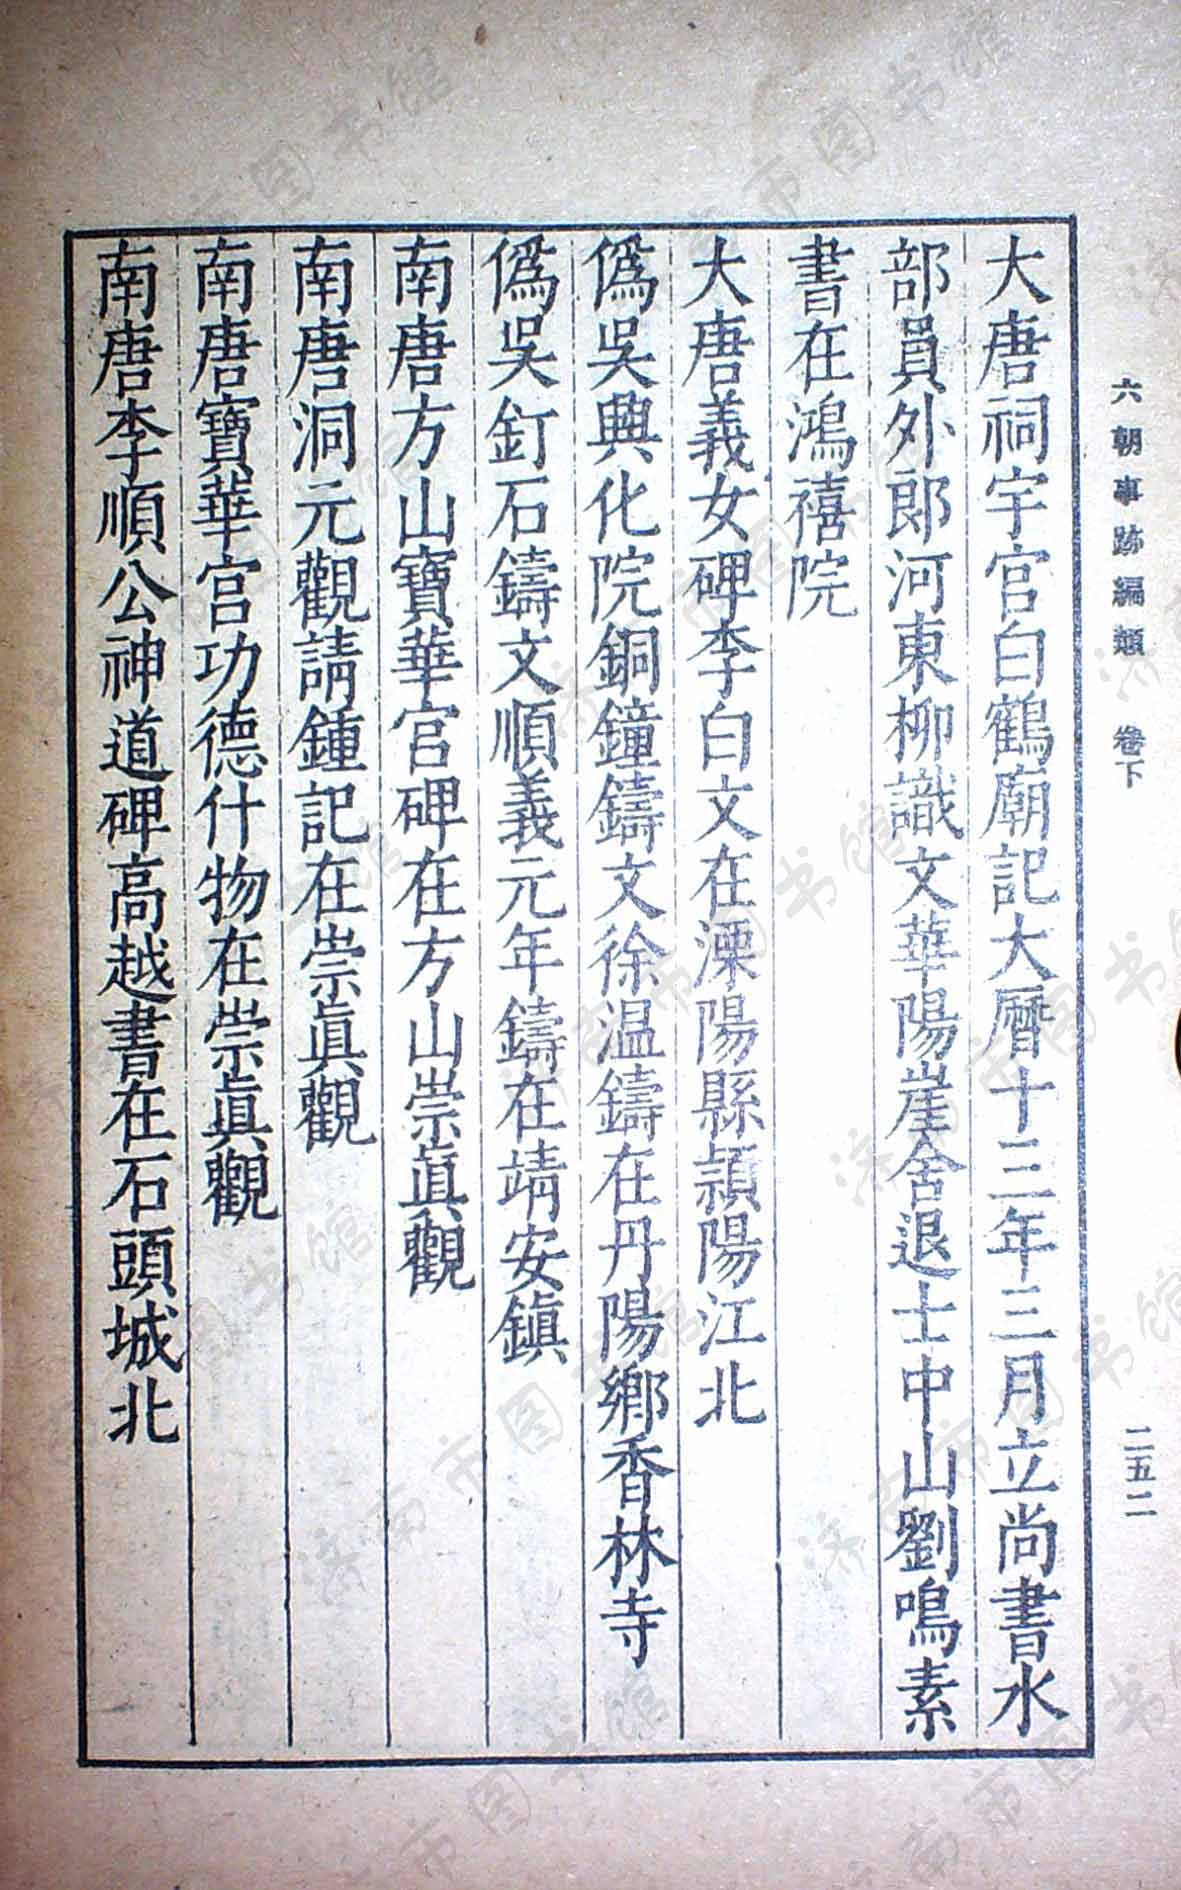 六朝事跡編類 卷下
二五二
大唐祠宇宮白鶴廟記大曆十三年三月立尚書水
部員外郎河東柳識文華陽崖舍退士中山劉鳴素
書在鴻禧院
大唐義女碑李白文在溧陽縣潁陽江北
僞吳興化院銅鐘鑄文徐温鑄在丹陽鄉香林寺
僞吳釘石鑄文順義元年鑄在靖安鎮
南唐方山寶華宮碑在方山崇眞觀
南唐洞元觀請鍾記在崇眞觀
南唐寶華宮功德什物在崇眞觀
南唐李順公神道碑高越書在石頭城北
济南市图书馆